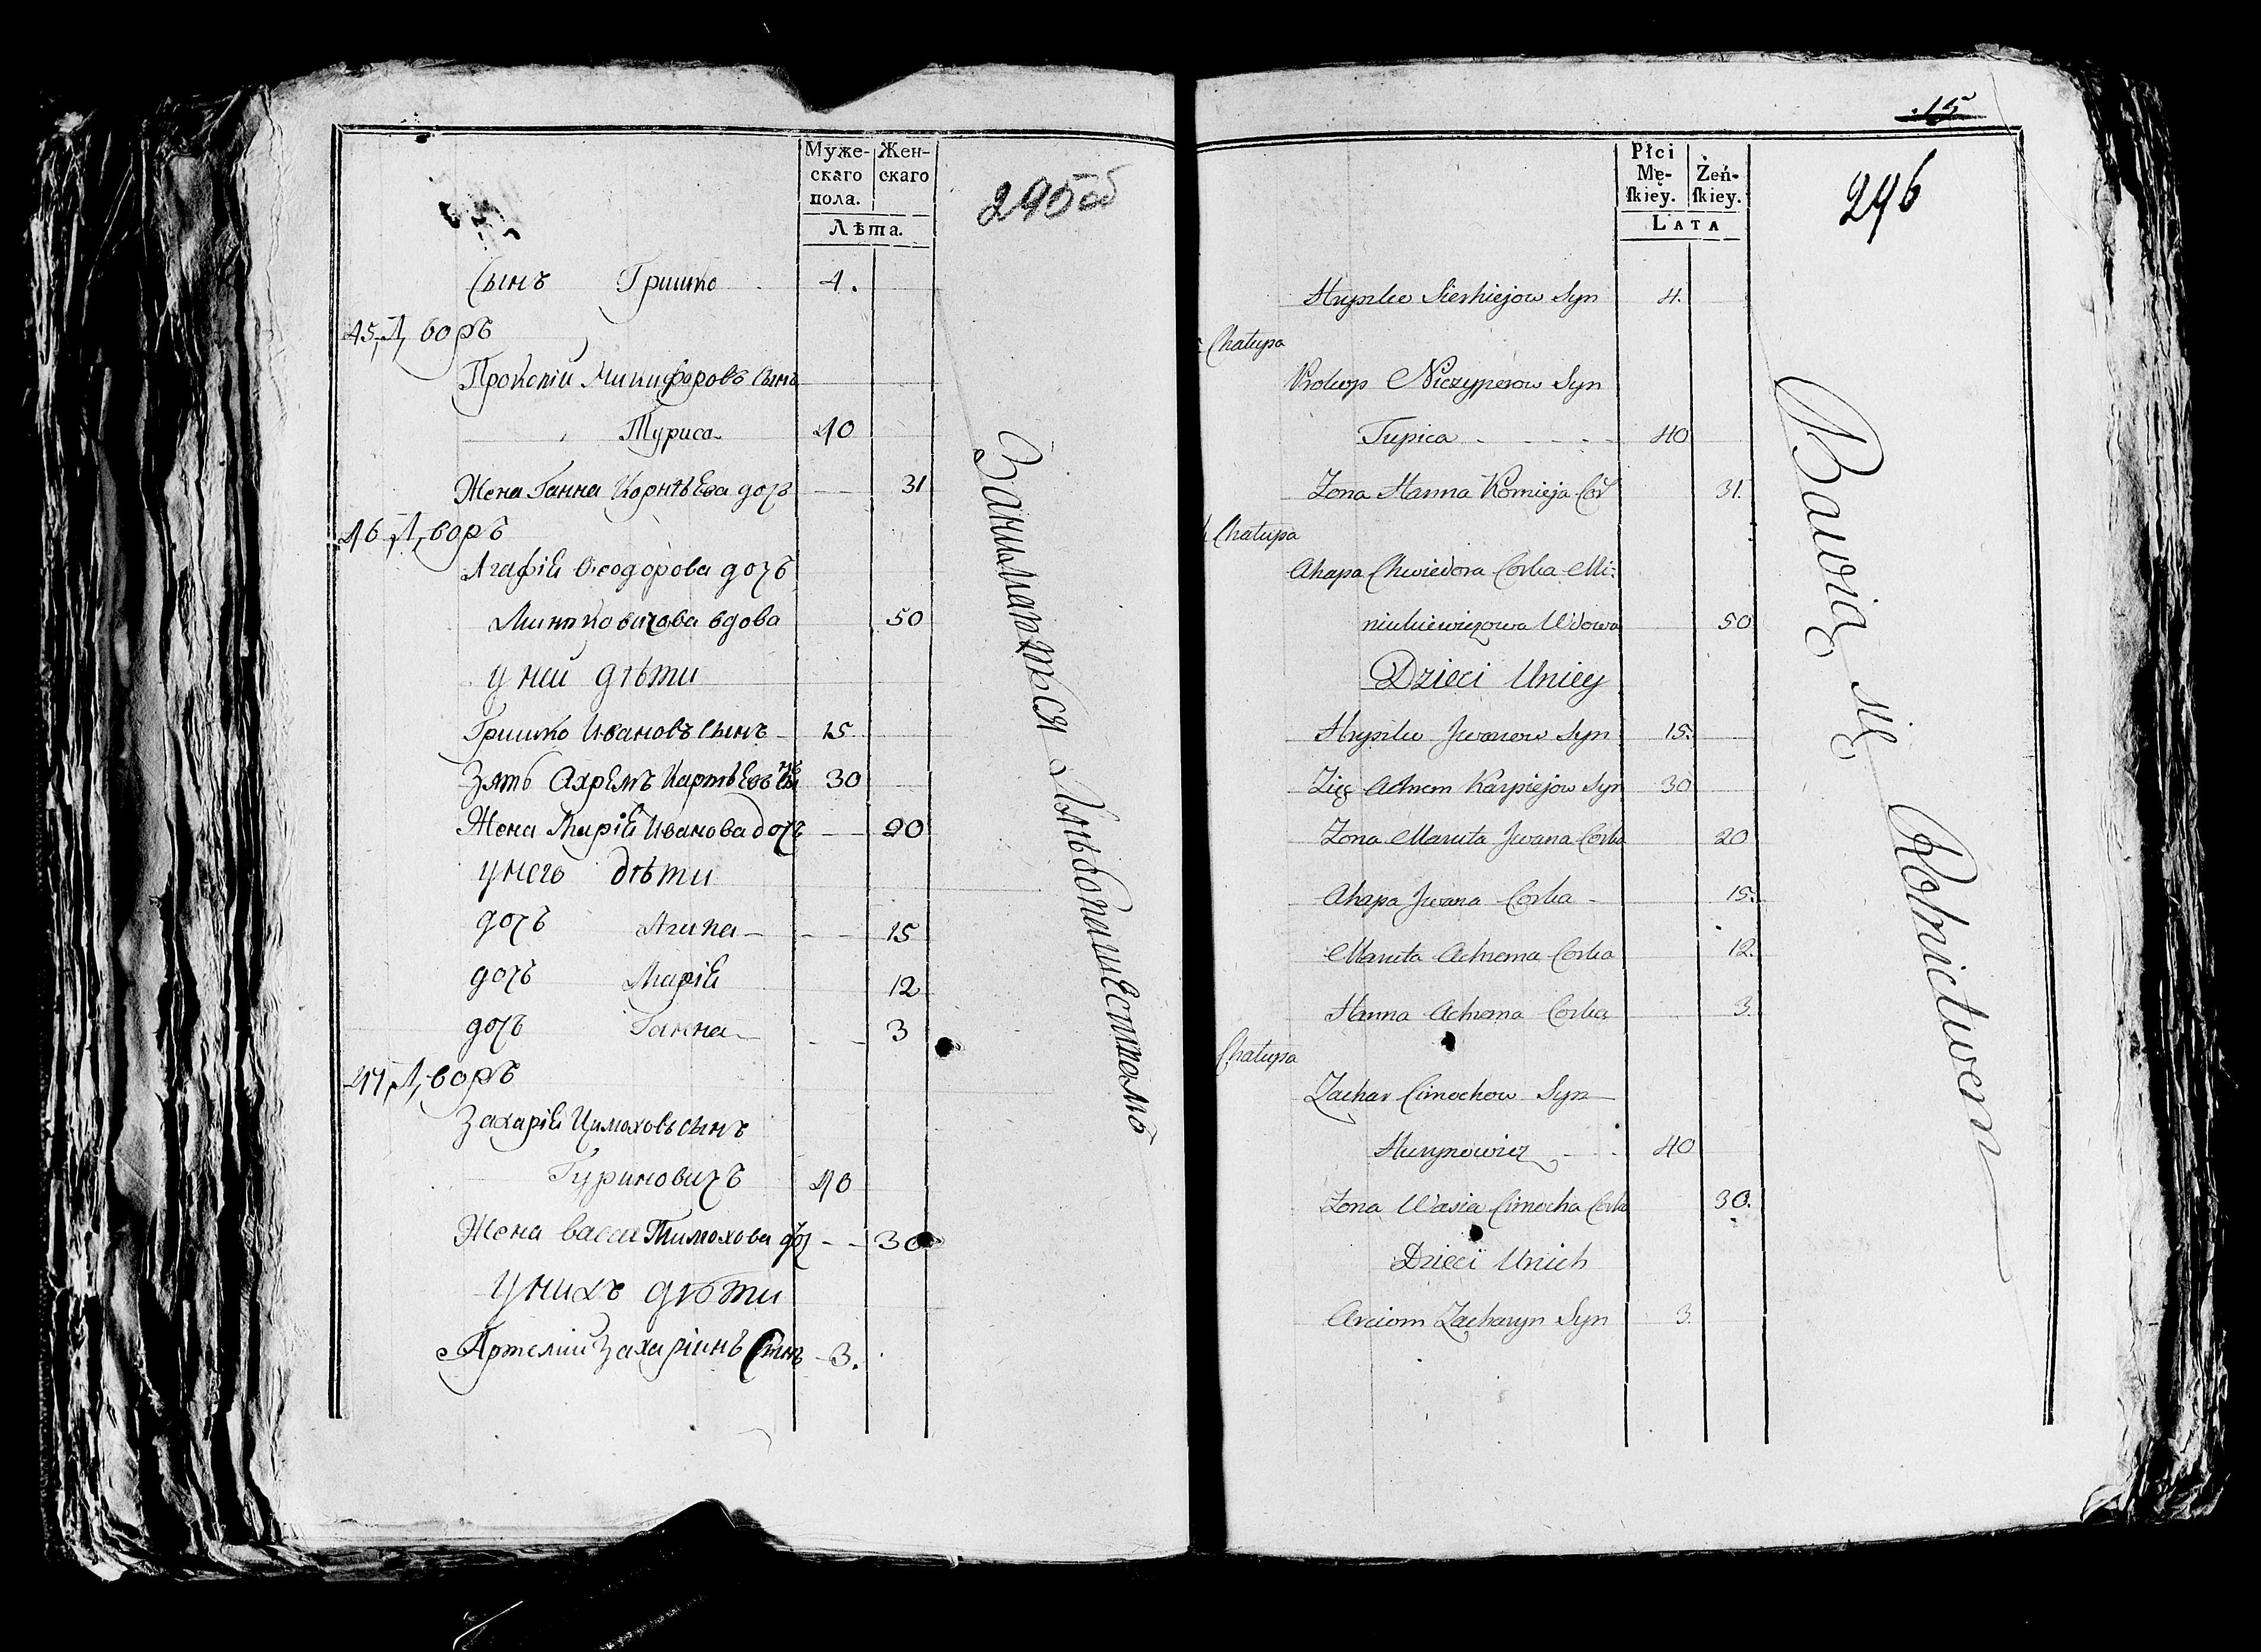 Муже-
скаго
пола.
Жен-
скаго
Лѣта.
295 об
Сынъ Гришко 4.
45, Дворъ
Прокопій Микифоровъ Сынъ
Туриса 40
Жена Ганна Корнѣева дочь 31
46, Дворъ
Агафія Ѳеодорова дочь
вдова 50
у ней дѣти
Гришко Ивановъ Сынъ 15
Зять Ахремъ Карпѣевъ Сынъ 30
Жена Марія Иванова дочь 20
у него дѣти
дочь Агапа 15
дочь Марія 12
дочь Ганна 3
47, Дворъ
Захарій Цимоховъ сынъ
Гуриновичъ 40
Жена Васса Тимохова доч 30
у нихъ дѣти
Артемій Захаріинъ Сынъ 3.
Занимаются Хлѣбопашествомъ
15
Płci
Mę-
ſkiey.
Żeń-
ſkiey.
LATA
296
Hryszko Sierhiejow Syn 4.
Chałupa
Prokop Niczyperow Syn
Tupica 40
Zona Hanna Kornieja Cor 31.
Chałupa
Ahapa Chwiedora Corka Mi-
niukiewiczowa Wdowa 50
Dzieci Uniey
Hryszko Jwanow Syn 15.
Zięć Achrem Karpiejow Syn 30
Zona Maruta Jwana Corka 20
Ahapa Jwana Corka 15.
Maruta Achrema Corka 12.
Hanna Achrema Corka 3.
Chałupa
Zachar Cimochow Syn
Hurynowicz 40
Zona Wasia Cimocha Corka 30.
Dzieci Unich
Arciom Zacharyn Syn 3.
Bawią się Rolnictwem